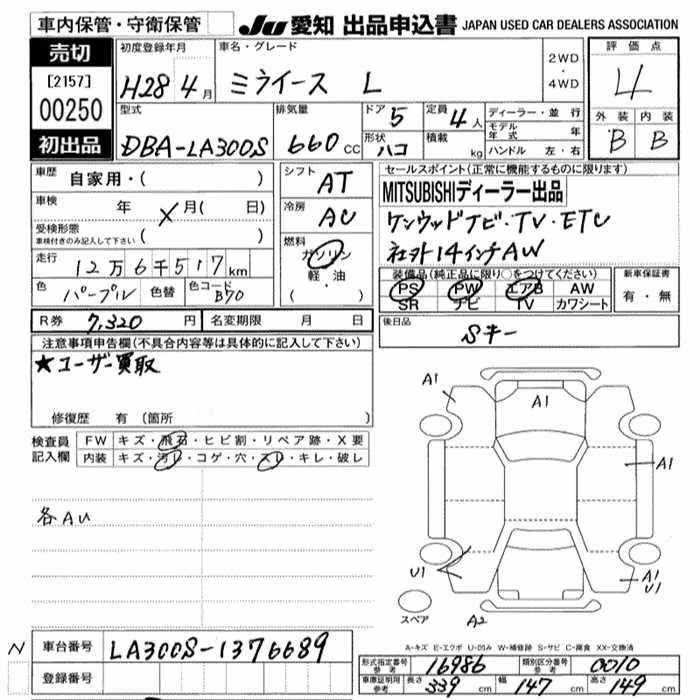 車内保管・守衛保管
JU 愛知 出品申込書 JAPAN USED CAR DEALERS ASSOCIATION
売切
[2157]
00250
初出品
初度登録年月
H28 4月
車名・グレード
ミライース L
2WD
・
4WD
評価点
4
外装 内装
B B
型式
DBA-LA300S
排気量
660cc
ドア
5
定員
4人
形状
ハコ
積載
kg
ディーラー・並行
モデル年式 年
ハンドル 左・右
車歴
自家用・( )
車検
年 X 月( 日)
受検形態
車検付きのみ記入して下さい ( )
走行
12万6千517km
色
パープル
色替
色コード
B70
シフト
AT
冷房
AC
燃料
ガソリン
軽・油
( ・ )
セールスポイント(正常に機能するものに限ります)
MITSUBISHIディーラー出品
ケンウッドナビ・TV・ETC
社外14インチAW
装備品(純正品に限り○をつけてください)
PS PW エアB AW
SR ナビ TV カワシート
新車保証書
有・無
R券 7,320 円 名変期限 月 日
後日品
Sキー
注意事項申告欄(不具合内容等は具体的に記入して下さい)
★ユーザー買取
修復歴 有 (箇所 )
検査員
記入欄
FW キズ・飛石・ヒビ割・リペア跡・X要
内装 キズ・汚レ・コゲ・穴・スレ・キレ・破レ
各AU
A1
A1
A1
U1
A1
U1
A2
スペア
A-キズ E-エクボ U-凹み W-補修跡 S-サビ C-腐食 XX-交換済
N
車台番号 LA300S-1376689
登録番号
形式指定番号
参考
16986
類別区分番号
参考
0010
車庫証明用
参考
長さ 339 cm 幅 147 cm 高さ 149 cm